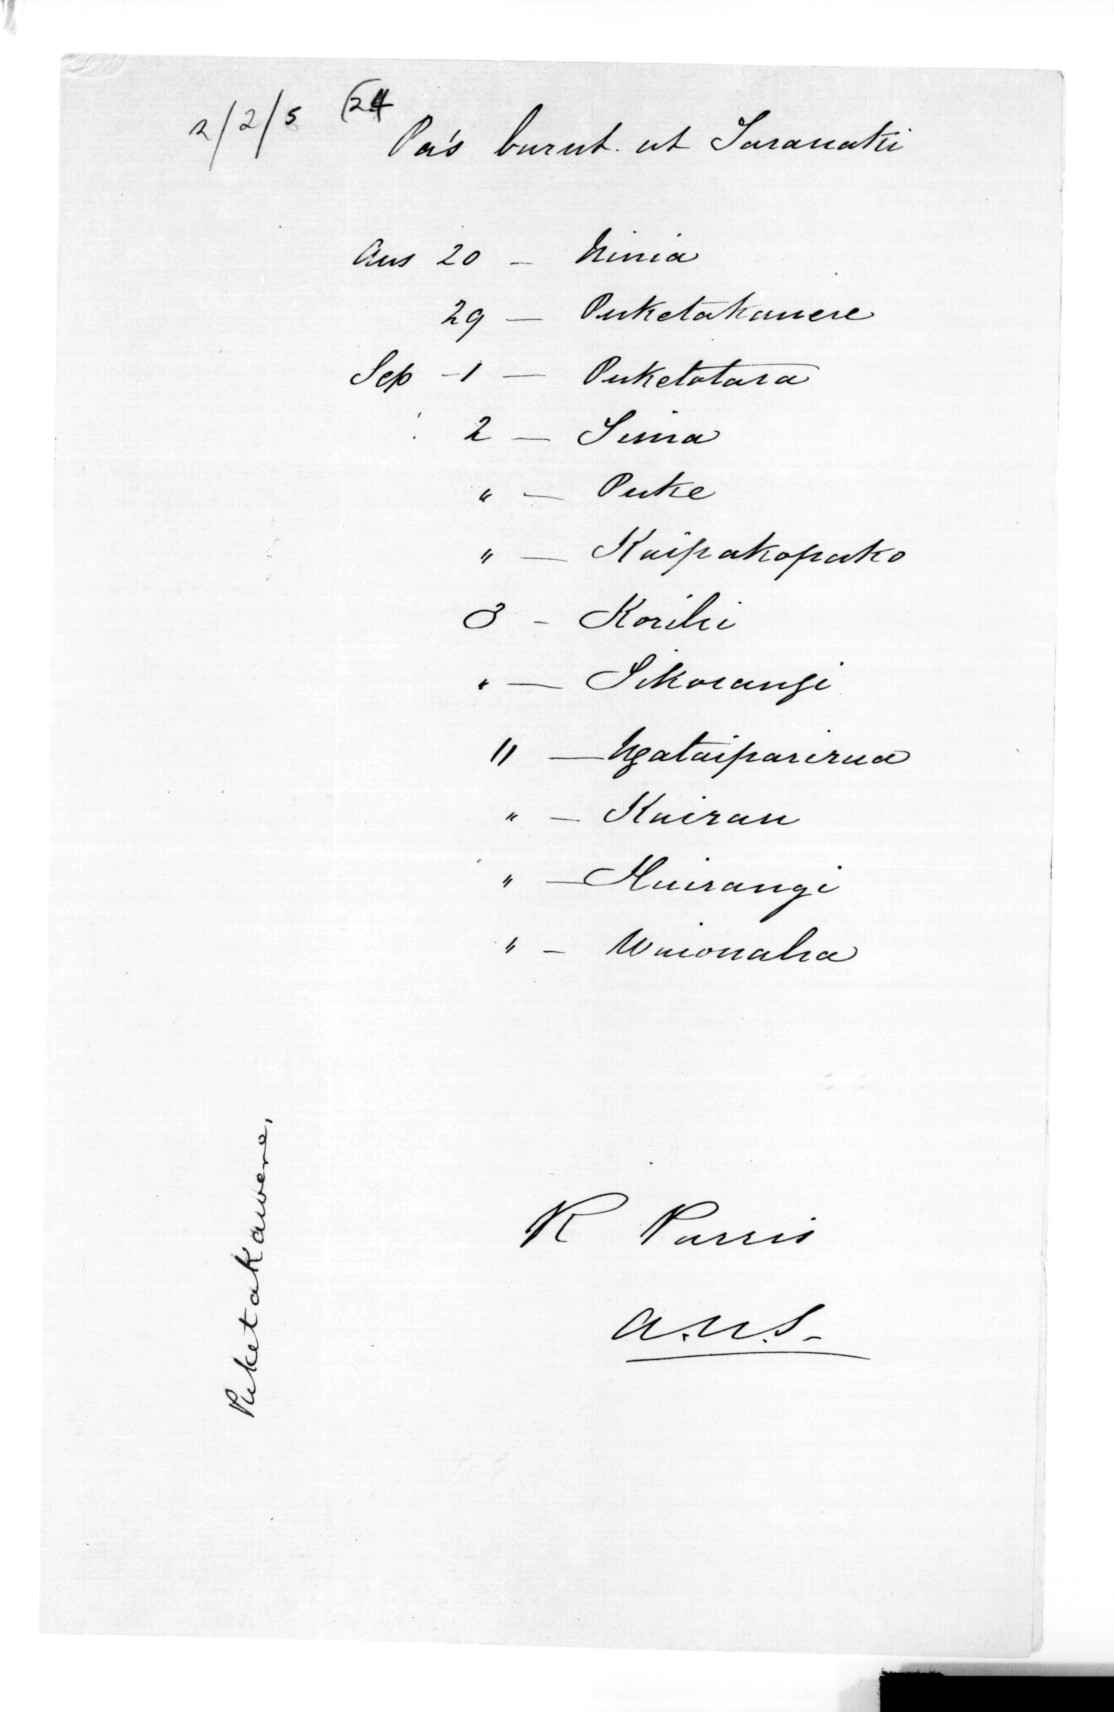 2/2/5 (24
Pa's burnt at Taranaki
Aug 20 — Ninia
29 — Puketakauere
Sep 1 — Puketotara
2 — Tima
" — Puke
" — Kaipakopako
3 — Korihi
" — Tikorangi
11 — Ngataiparirua
" — Kairau
" — Huirangi
" — Waionaha
R Parris
A.N.S.
Puketakawere,